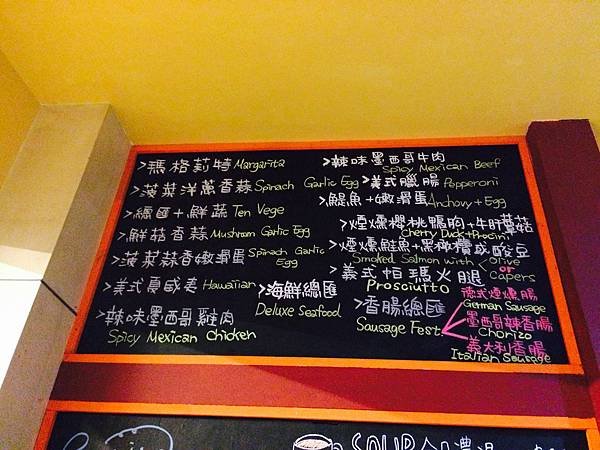 >瑪格莉特 Margarita
>菠菜洋蔥香蒜 Spinach Garlic Egg
>總匯+鮮蔬 Ten Vege
>鮮菇香蒜 Mushroom Garlic Egg
>菠菜蒜香嫩滑蛋 Spinach Garlic Egg
>美式夏威夷 Hawaiian
>辣味墨西哥雞肉
Spicy Mexican Chicken
>海鮮總匯
Deluxe Seafood
>辣味墨西哥牛肉
Spicy Mexican Beef
>美式臘腸 Pepperoni
>鯷魚+嫩滑蛋 Anchovy+Egg
>煙燻櫻桃鴨胸+牛肝蕈菇
Cherry Duck+Procini
>煙燻鮭魚+黑橄欖或酸豆
Smoked Salmon with olive or capers
>義式帕瑪火腿
Prosciutto
>香腸總匯
Sausage Fest.
德式煙燻腸
German Sausage
墨西哥辣香腸
Chorizo
義大利香腸
Italian Sausage
SOUP